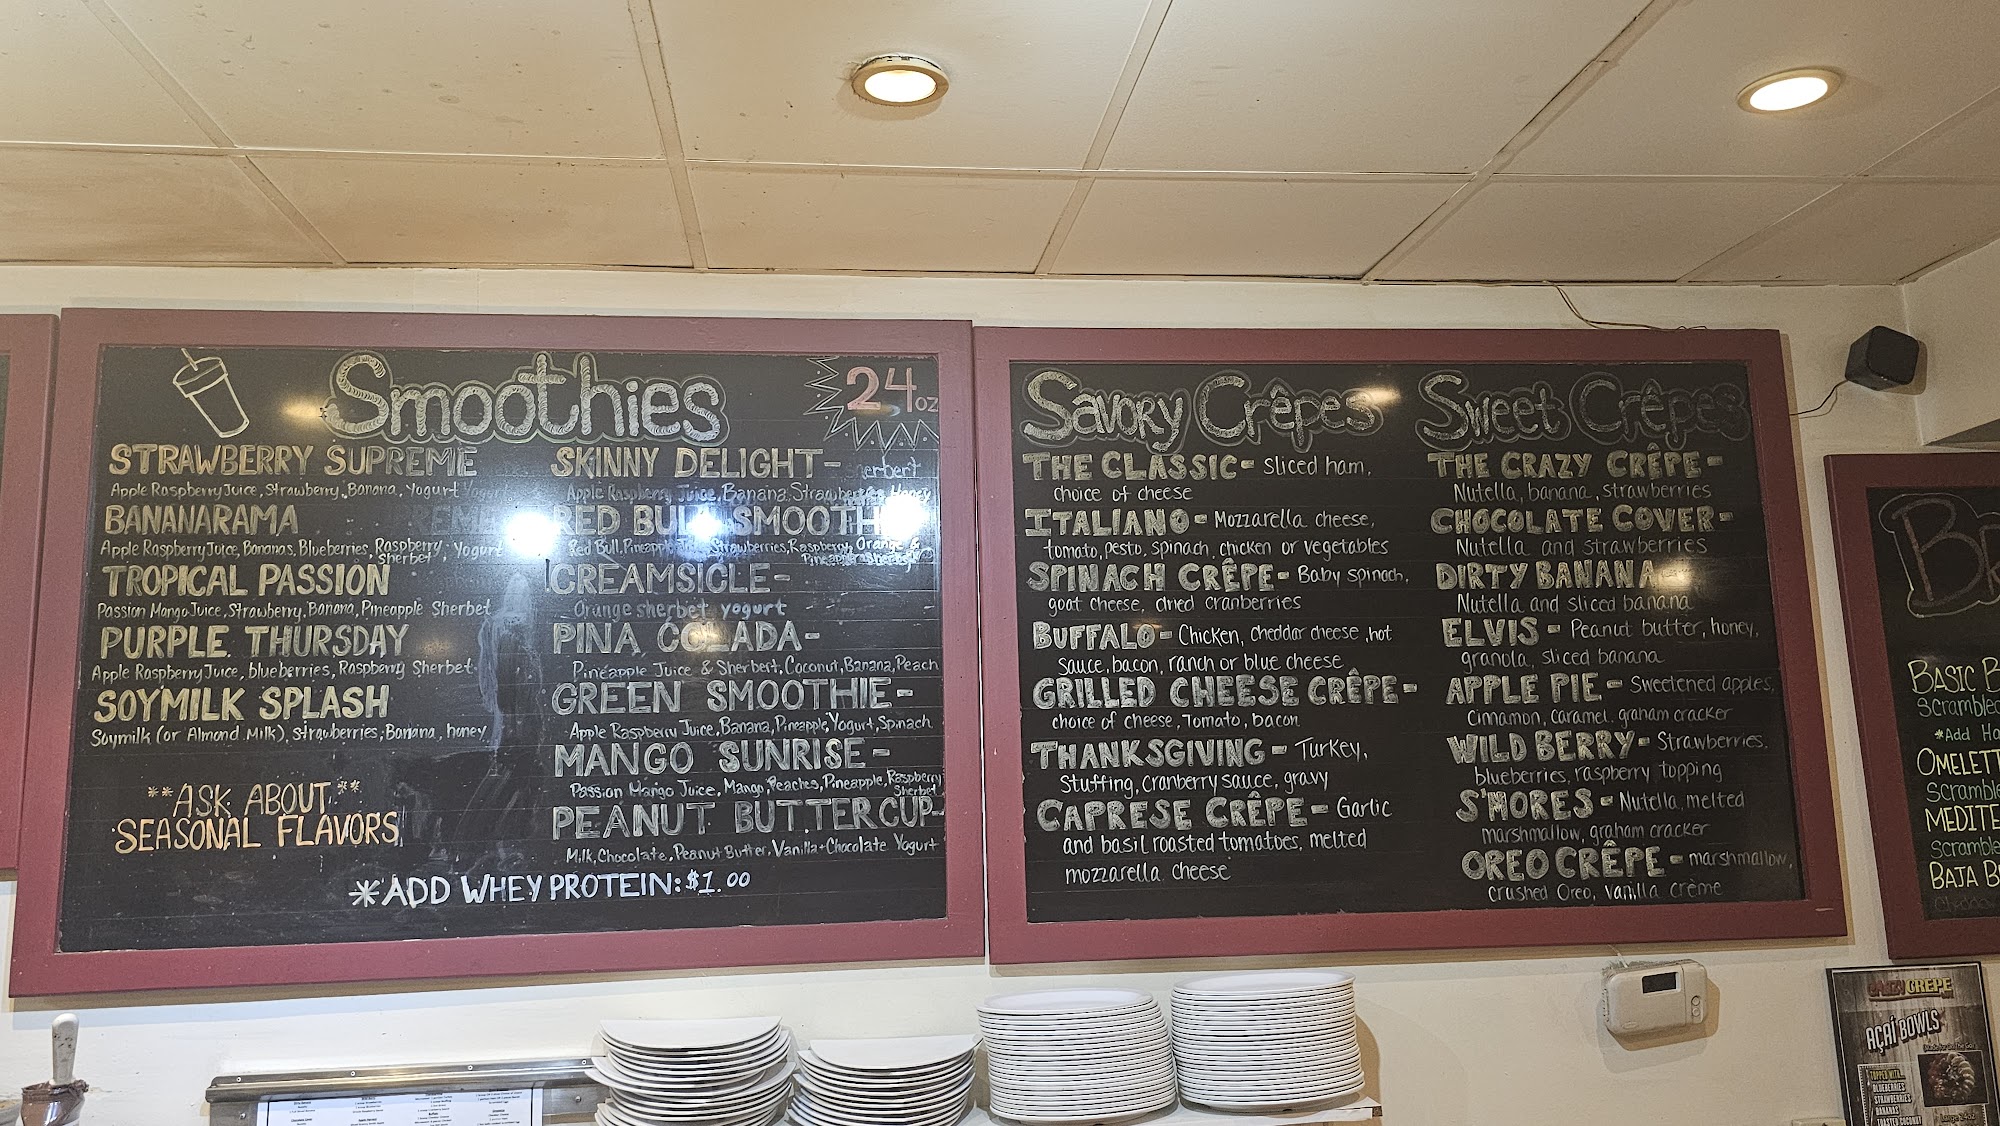 Smoothies
24oz
STRAWBERRY SUPREME
Apple Raspberry Juice, Strawberry, Banana, Yogurt
BANANARAMA
Apple Raspberry Juice, Bananas, Blueberries, Raspberry Sherbet, Yogurt
TROPICAL PASSION
Passion Mango Juice, Strawberry, Banana, Pineapple Sherbet
PURPLE THURSDAY
Apple Raspberry Juice, blueberries, Raspberry Sherbet
SOYMILK SPLASH
Soymilk (or Almond Milk), strawberries, Banana, honey
**ASK ABOUT**
SEASONAL FLAVORS
SKINNY DELIGHT- Sherbert
Apple Raspberry Juice, Banana, Strawberries, Honey
RED BULL SMOOTH
Red Bull, Pineapple Strawberries, Raspberry, Orange &
Pineapple sherbet
CREAMSICLE-
Orange sherbet yogurt
PINA COLADA-
Pineapple Juice & Sherbert, Coconut, Banana, Peach
GREEN SMOOTHIE-
Apple Raspberry Juice, Banana, Pineapple, Yogurt, Spinach
MANGO SUNRISE-
Passion Mango Juice, Mango, Peaches, Pineapple, Raspberry Sherbet
PEANUT BUTTER CUP-
Milk, Chocolate, Peanut Butter, Vanilla + Chocolate Yogurt
*ADD WHEY PROTEIN: $1.00
Savory Crêpes
THE CLASSIC- sliced ham,
choice of cheese
ITALIANO- Mozzarella cheese,
tomato, pesto, spinach, chicken or vegetables
SPINACH CRÊPE- Baby spinach,
goat cheese, dried cranberries
BUFFALO- Chicken, cheddar cheese, hot
sauce, bacon, ranch or blue cheese
GRILLED CHEESE CRÊPE-
choice of cheese, Tomato, bacon
THANKSGIVING- Turkey,
Stuffing, Cranberry sauce, gravy
CAPRESE CRÊPE- Garlic
and basil roasted tomatoes, melted
mozzarella cheese
Sweet Crêpes
THE CRAZY CRÊPE-
Nutella, banana, strawberries
CHOCOLATE COVER-
Nutella and strawberries
DIRTY BANANA-
Nutella and sliced banana
ELVIS- Peanut butter, honey,
granola, sliced banana
APPLE PIE- Sweetened apples,
Cinnamon, caramel, graham cracker
WILD BERRY- Strawberries,
blueberries, raspberry topping
S'MORES- Nutella, melted
marshmallow, graham cracker
OREO CRÊPE- marshmallow,
crushed Oreo, vanilla crème
BASIC B
Scrambled
*Add Ha
OMELETT
Scramble
MEDITE
Scramble
BAJA B
CRAZY CREPE
AÇAÍ BOWLS
TOPPED WITH...
BLUEBERRIES
STRAWBERRIES
BANANAS
TOASTED COCONUT